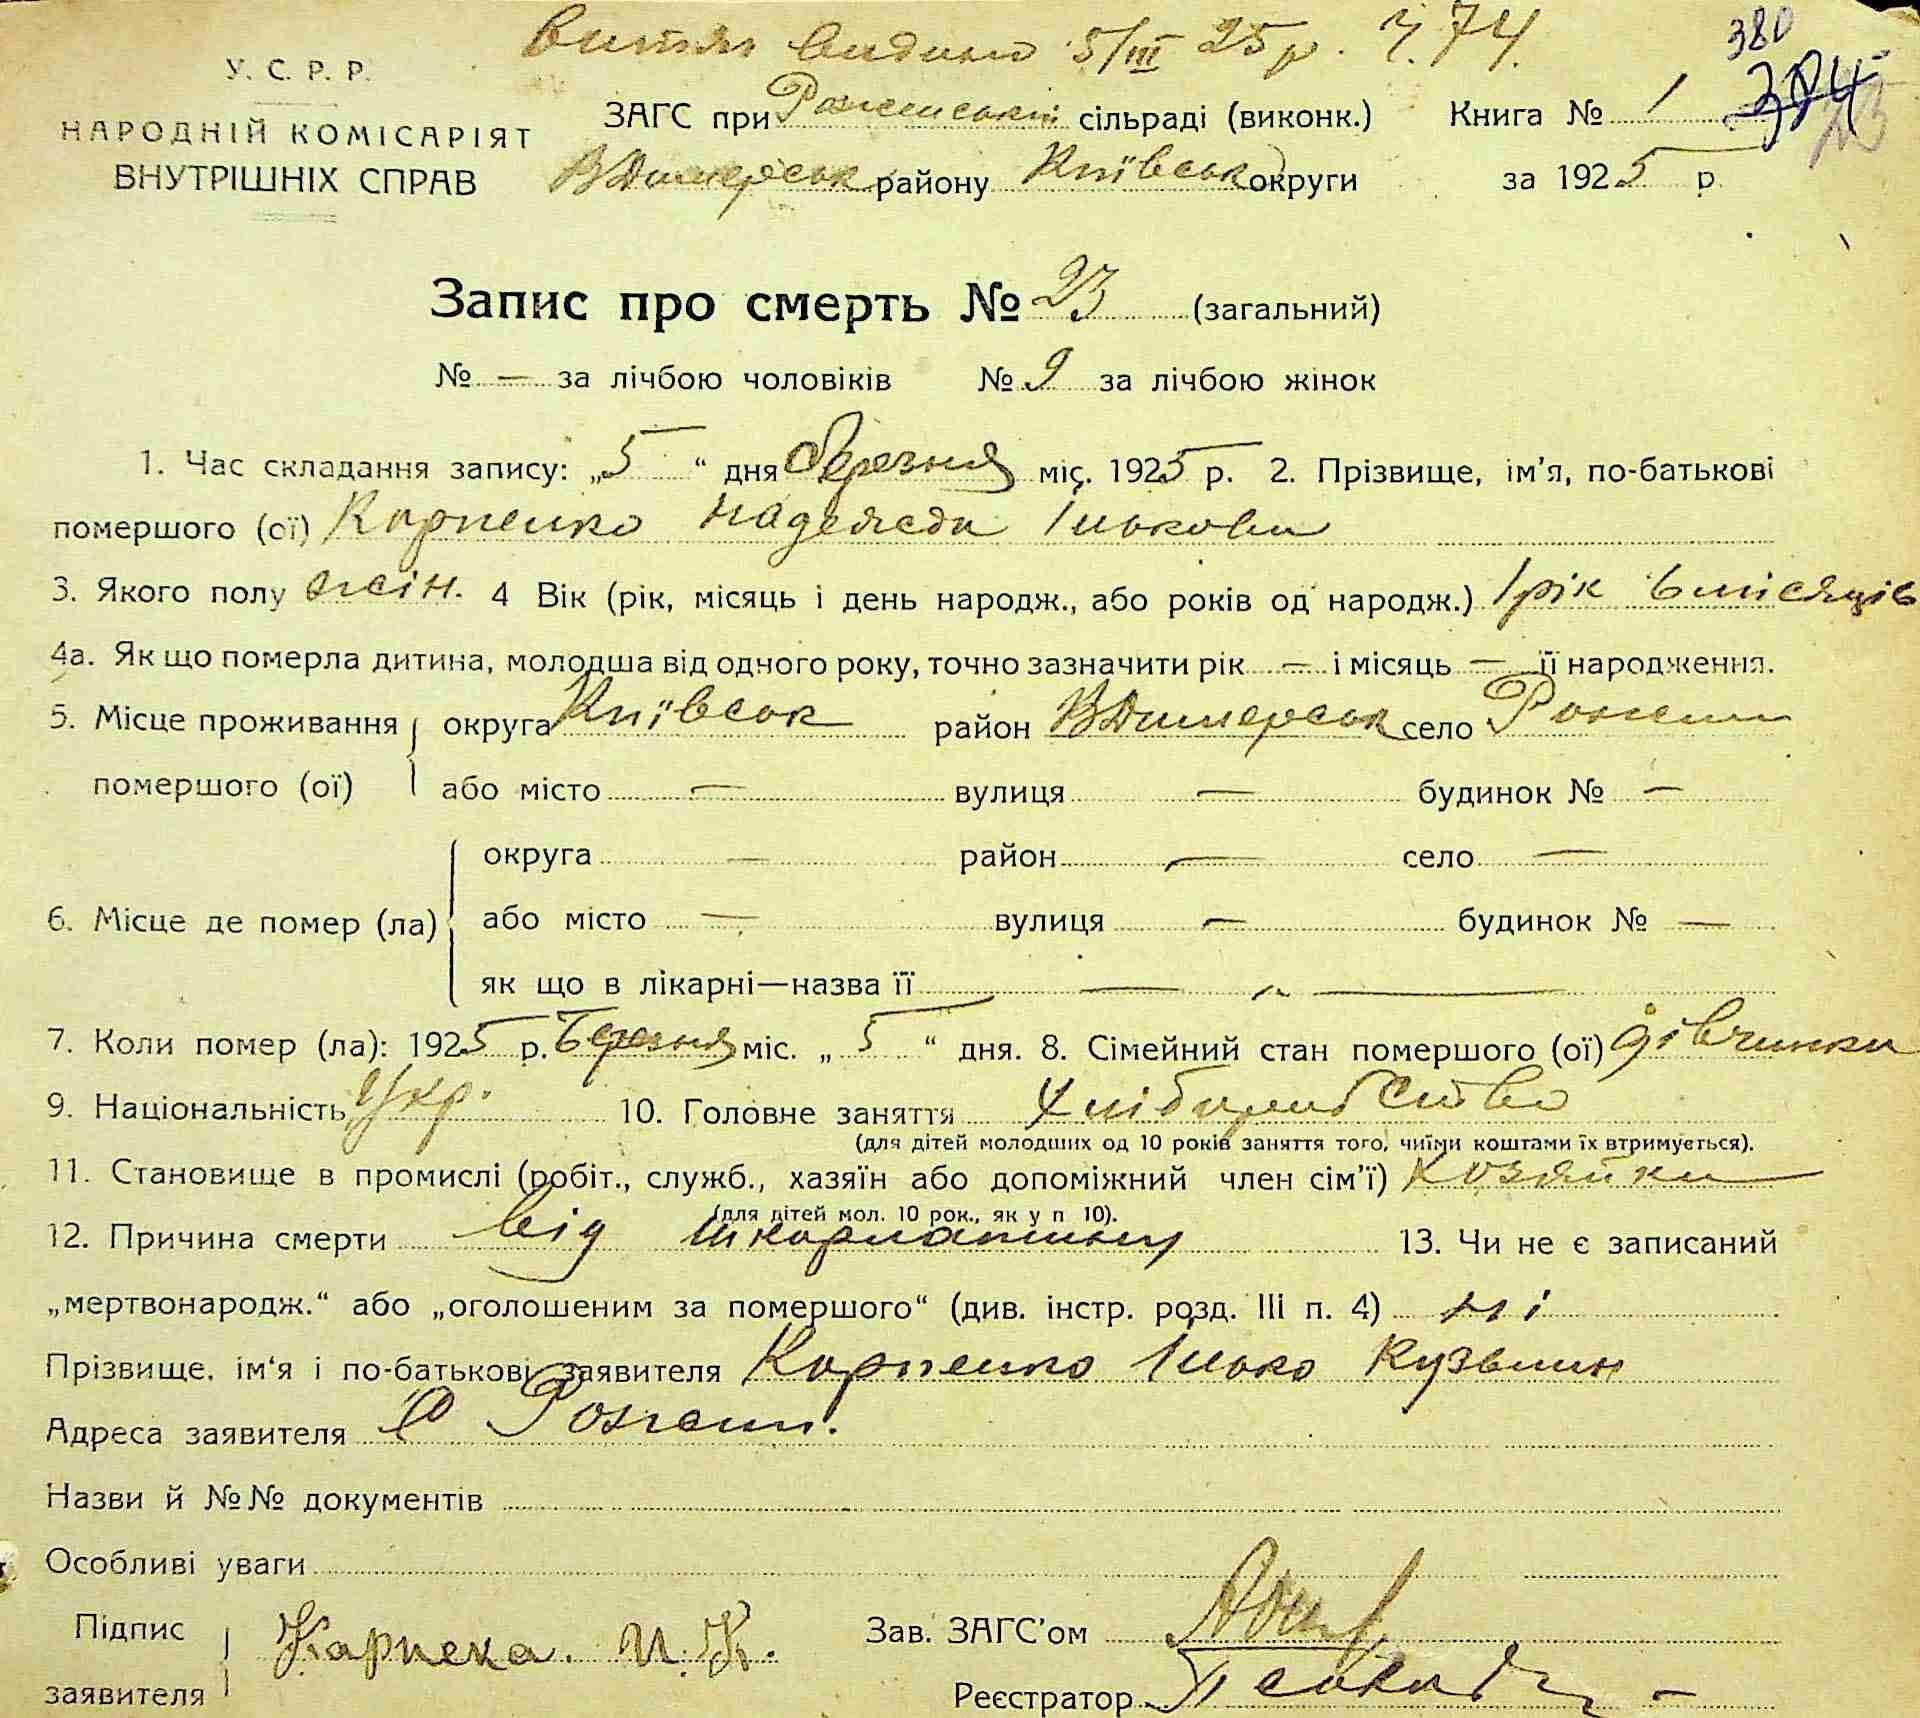 Витяг видано 5/III 25 р. Ч. 74.
380
384
23
У. С. Р. Р.
НАРОДНІЙ КОМІСАРІЯТ
ВНУТРІШНІХ СПРАВ
ЗАГС при Роженській сільраді (виконк.) Книга № 1
ВДимерськ району Київськ округи за 1925 р.
Запис про смерть № 23 (загальний)
№ — за лічбою чоловіків № 9 за лічбою жінок
1. Час складання запису: „5“ дня березня міс. 1925 р. 2. Прізвище, ім'я, по-батькові
помершого (ої) Карпенко Надежда Ількова
3. Якого полу жін. 4 Вік (рік, місяць і день народж., або років од народж.) 1 рік 6 місяців
4а. Як що померла дитина, молодша від одного року, точно зазначити рік — і місяць — її народження.
5. Місце проживання округа Київськ район ВДимерськ село Рожени
помершого (ої) або місто — вулиця — будинок № —
округа — район — село —
6. Місце де помер (ла) або місто — вулиця — будинок № —
як що в лікарні—назва її — „ —
7. Коли помер (ла): 1925 р. Березня міс. „5“ дня. 8. Сімейний стан помершого (ої) дівчинка
9. Національність Укр. 10. Головне заняття Хліборобство
(для дітей молодших од 10 років заняття того, чиїми коштами їх втримується).
11. Становище в промислі (робіт., служб., хазяїн або допоміжний член сім'ї) хозяйка
(для дітей мол. 10 рок., як у п 10).
12. Причина смерти від шкарлатини 13. Чи не є записаний
„мертвонародж.“ або „оголошеним за помершого“ (див. інстр. розд. III п. 4) ні
Прізвище, ім'я і по-батькові заявителя Карпенко Ілько Кузьмин
Адреса заявителя С Рожени.
Назви й №№ документів
Особливі уваги
Підпис
заявителя Карпека. И. К.
Зав. ЗАГС'ом
Реєстратор